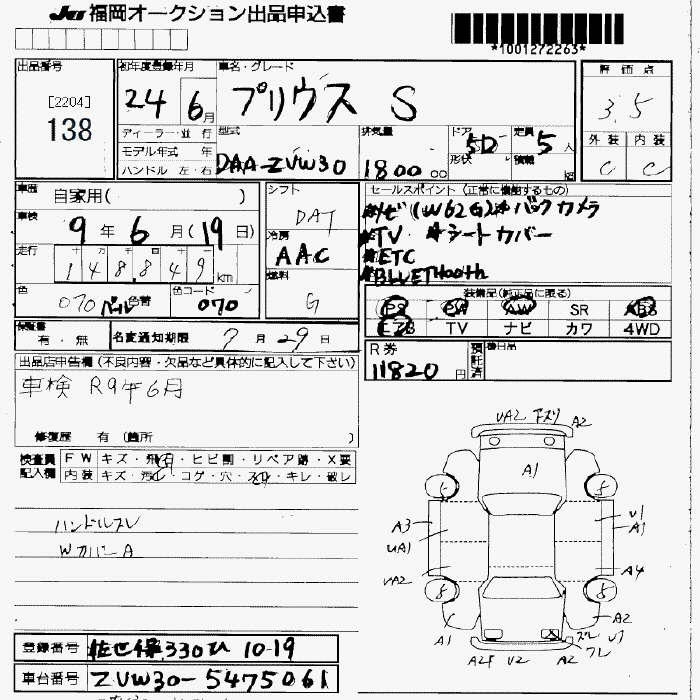 JU 福岡オークション出品申込書
*1001272263*
出品番号
[2204]
138
初年度登録年月
24 6月
ディーラー・並行
モデル年式 年
ハンドル 左・右
車名・グレード
プリウス S
型式
DAA-ZVW30
排気量
1800 cc
ドア
5D
形状
定員
5人
積載
評価点
3.5
外装 内装
C C
車歴
自家用( )
車検
9年 6月(19日)
走行
148,849 km
色
070 パール 色替
色コード
070
シフト
DAT
冷房
AAC
燃料
G
セールスポイント(正常に機能するもの)
*ナビ(W62G)*バックカメラ
*TV *シートカバー
*ETC
*BLUETHooth
装備品(純正品に限る)
PS PW AW SR ABS
エアB TV ナビ カワ 4WD
保証書
有・無
名変通知期限 7月29日
R券
11820円
預託済
出品店申告欄(不良内容・欠品など具体的に記入して下さい)
車検 R9年6月
修復歴 有(箇所 )
検査員記入欄
FW キズ・飛石・ヒビ割・リペア跡・X要
内装 キズ・汚レ・コゲ・穴・スレ・キレ・破レ
ハンドルスレ
WカバーA
登録番号 佐世保330ひ 10-19
車台番号 ZVW30-5475061
UA2 下ズリ A2
A1
5 5
A3
U1
A1
UA1
UA2
A4
5 5
A1
A2
ズレ U1
ワレ
A2 U2 A2